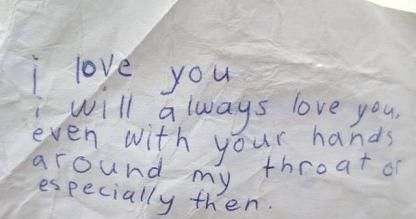 i love you
i will always love you,
even with your hands
around my throat or
especially then.